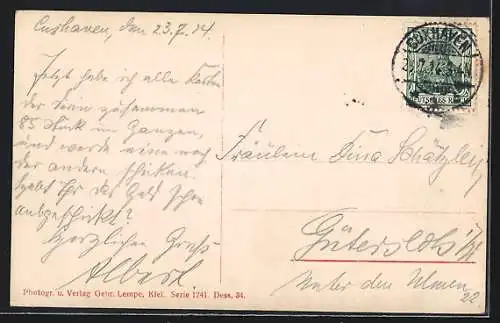 Cuxhaven, den 23.7.14.
Jetzt habe ich alle Karten
der Serie zusammen
85 Stück im Ganzen,
und werde eine nach
der andern schicken.
Habt Ihr das Geld schon
abgeschickt?
Herzlichen Gruß
Albert.
Photogr. u. Verlag Gebr. Lempe, Kiel. Serie 1741. Dess. 34.
CUXHAVEN
Fräulein Tina
Gütersloh i/W
Unter den Ulmen
22